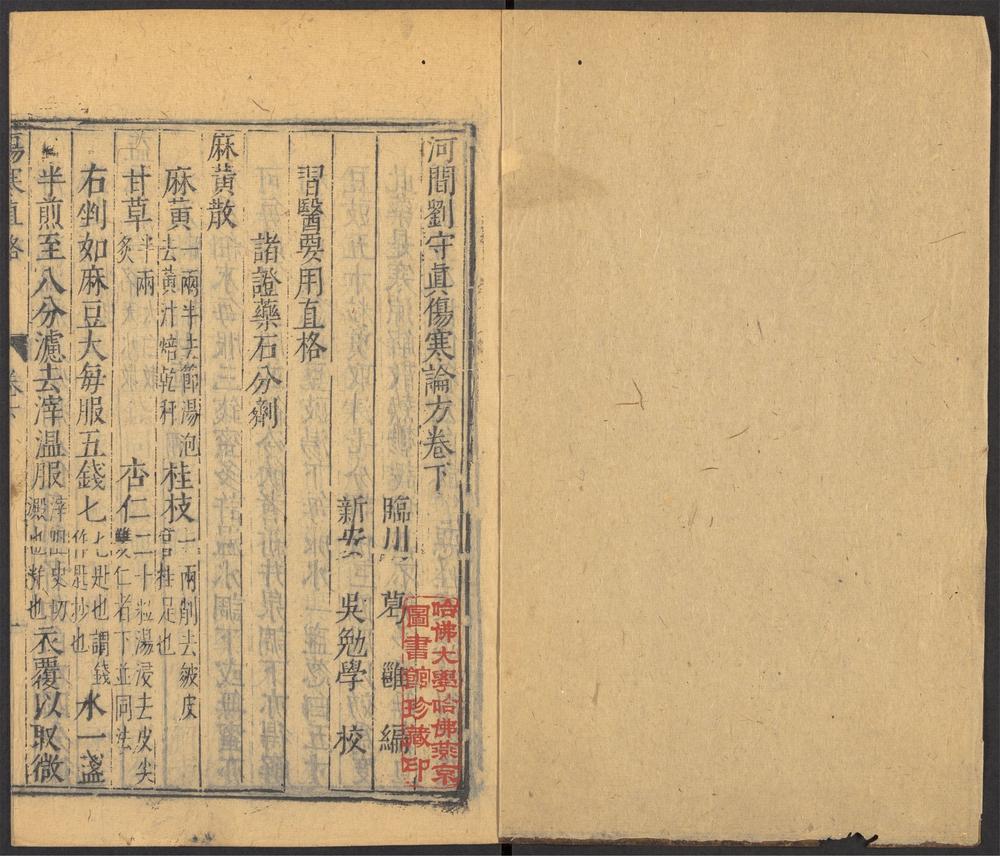 河間劉守眞傷寒論方卷下
臨川 葛雝 編
新安 吳勉學 校
習醫要用直格
諸證藥石分劑
麻黃散
麻黃一兩半去節湯泡去黃汁焙乾秤 桂枝一兩削去皴皮官桂是也
甘草半兩炙 杏仁二十粒湯浸去皮尖雙仁者下並同法
右剉如麻豆大每服五錢七七匙也謂錢作匙抄也水一盞
半煎至八分濾去滓溫服滓切澱也也衣覆以取微
傷寒直格 卷下 一
哈佛大學哈佛燕京圖書館珍藏印